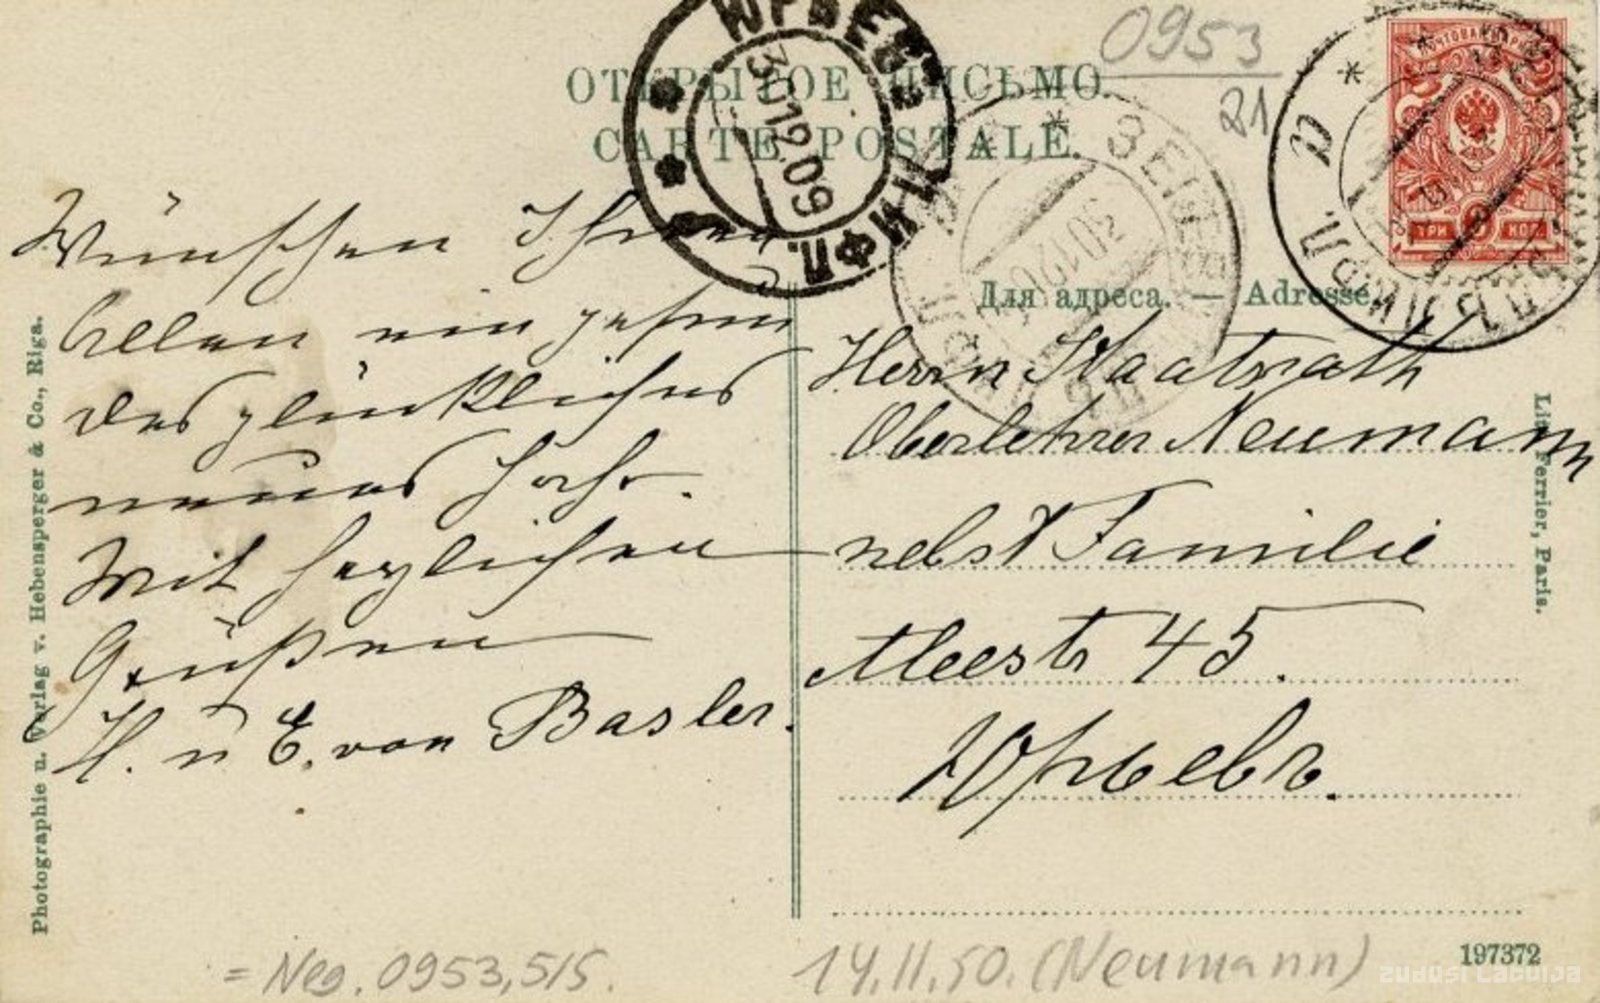 ОТКРЫТОЕ ПИСЬМО.
CARTE POSTALE.
0953
21
ЮРЬЕВЪ
30 12.09
ЛИФЛ.
ТРИ КОП.
Wünschen Ihnen
Allen ein gesun
des glückliches
neues Jahr.
Mit herzlichen
Grüßen
H. u E. von Basler.
Для адреса. — Adresse.
Herrn Staatsrath
Oberlehrer Neumann
nebst Familie
Alleestr 45.
Юрьевъ.
Photographie u. Verlag v. Hebensperger & Co., Riga.
Ferrier, Paris.
= Neg. 0953,515.
14.II.50. (Neumann)
197372
zudusi Latvija